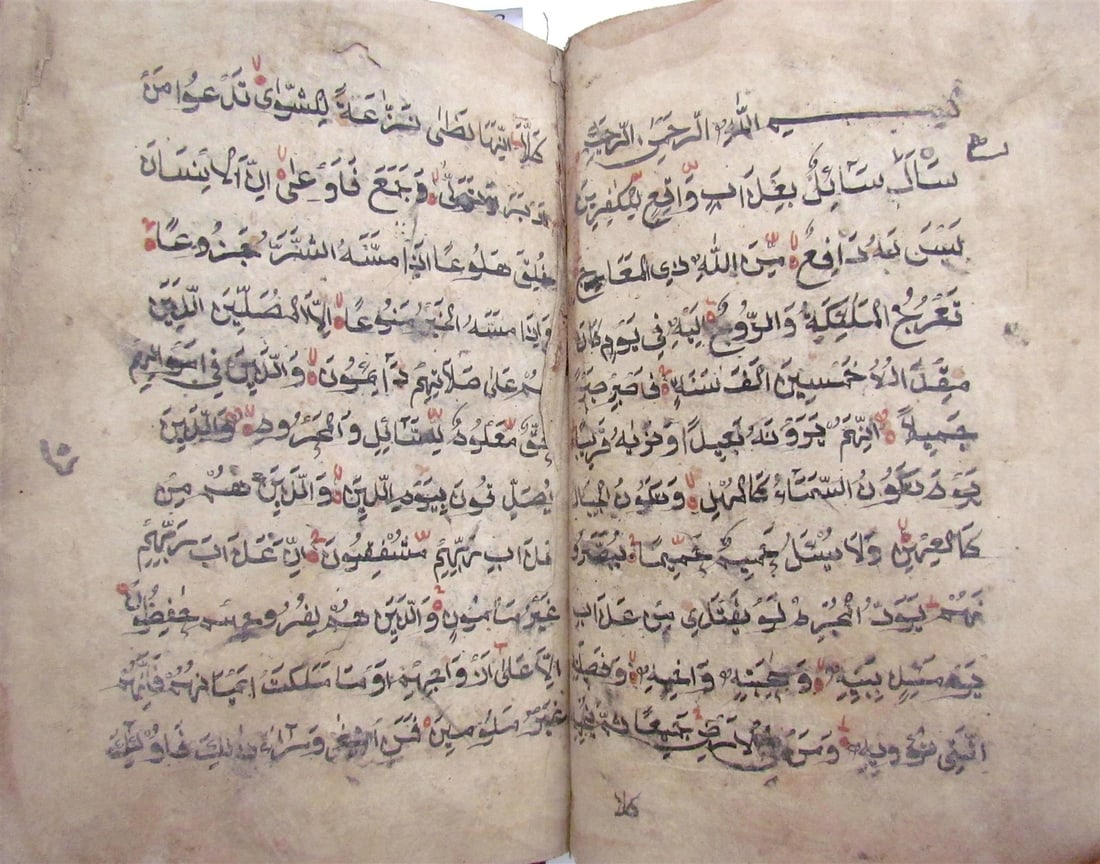 بسم الله الرحمن الرحيم
سَاَلَ سَائِلٌ بِعَذَابٍ وَّاقِعٍ لِّلْكٰفِرِينَ
لَيْسَ لَهُ دَافِعٌ مِّنَ اللّٰهِ ذِي الْمَعَارِجِ
تَعْرُجُ الْمَلٰئِكَةُ وَالرُّوحُ اِلَيْهِ فِي يَوْمٍ كَانَ
مِقْدَارُهُ خَمْسِينَ اَلْفَ سَنَةٍ فَاصْبِرْ صَبْرًا
جَمِيلًا اِنَّهُمْ يَرَوْنَهُ بَعِيدًا وَنَرٰىهُ قَرِيبًا
يَوْمَ تَكُونُ السَّمَاءُ كَالْمُهْلِ وَتَكُونُ الْجِبَالُ
كَالْعِهْنِ وَلَا يَسْئَلُ حَمِيمٌ حَمِيمًا يُبَصَّرُو
نَهُمْ يَوَدُّ الْمُجْرِمُ لَوْ يَفْتَدِي مِنْ عَذَابِ
يَوْمَئِذٍ بِبَنِيهِ وَصَاحِبَتِهِ وَاَخِيهِ وَفَصِيلَتِهِ
الَّتِي تُؤْوِيهِ وَمَنْ فِي الْاَرْضِ جَمِيعًا ثُمَّ يُنْجِيهِ
كلا
كَلَّا اِنَّهَا لَظٰى نَزَّاعَةً لِّلشَّوٰى تَدْعُوا مَنْ
اَدْبَرَ وَتَوَلّٰى وَجَمَعَ فَاَوْعٰى اِنَّ الْاِنْسَانَ
خُلِقَ هَلُوعًا اِذَا مَسَّهُ الشَّرُّ جَزُوعًا
وَاِذَا مَسَّهُ الْخَيْرُ مَنُوعًا اِلَّا الْمُصَلِّينَ الَّذِينَ
هُمْ عَلٰى صَلَاتِهِمْ دَائِمُونَ وَالَّذِينَ فِي اَمْوَالِهِمْ
حَقٌّ مَّعْلُومٌ لِّلسَّائِلِ وَالْمَحْرُومِ وَالَّذِينَ
يُصَدِّقُونَ بِيَوْمِ الدِّينِ وَالَّذِينَ هُمْ مِنْ
عَذَابِ رَبِّهِمْ مُّشْفِقُونَ اِنَّ عَذَابَ رَبِّهِمْ
غَيْرُ مَأْمُونٍ وَالَّذِينَ هُمْ لِفُرُوجِهِمْ حٰفِظُونَ
اِلَّا عَلٰى اَزْوَاجِهِمْ اَوْ مَا مَلَكَتْ اَيْمَانُهُمْ فَاِنَّهُمْ
غَيْرُ مَلُومِينَ فَمَنِ ابْتَغٰى وَرَاءَ ذٰلِكَ فَاُولٰئِكَ